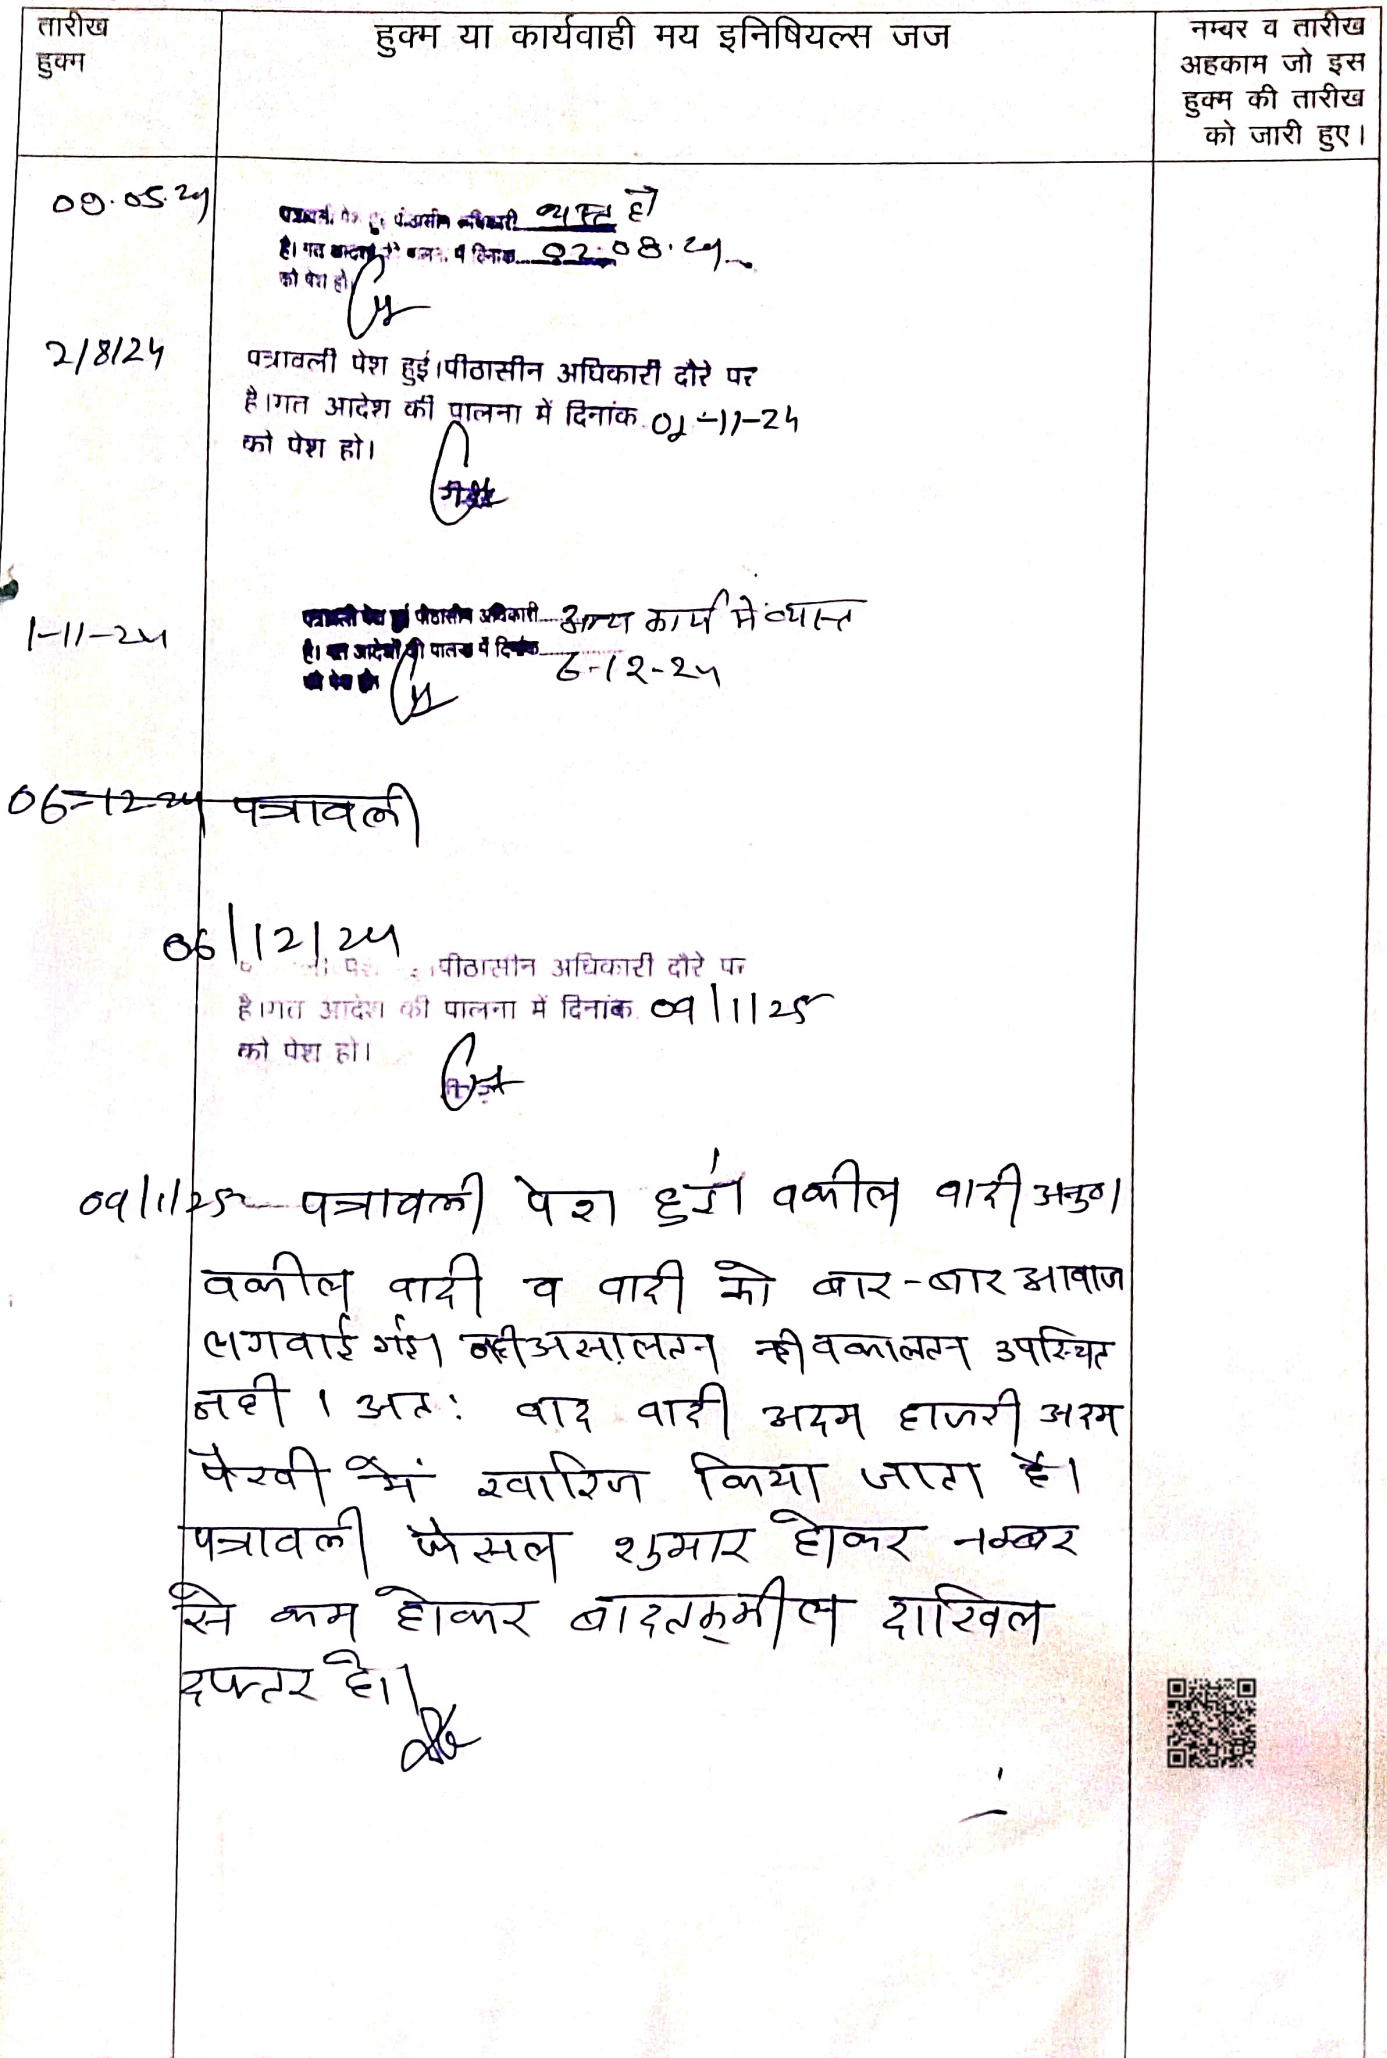 तारीख
हुक्म
हुक्म या कार्यवाही मय इनिषियल्स जज
नम्बर व तारीख
अहकाम जो इस
हुक्म की तारीख
को जारी हुए।
09.05.24
पीठासीन अधिकारी व्यस्त है
है। गत दिनांक 02.08.24
को पेश हो।
2/8/24
पत्रावली पेश हुई।पीठासीन अधिकारी दौरे पर
है।गत आदेश की पालना में दिनांक 01-11-24
को पेश हो।
1-11-24
पत्रावली पेश हुई पीठासीन अधिकारी अन्य कार्य मे व्यस्त
है। गत आदेशों की पालना में दिनांक
6-12-24
को पेश हो
06-12-24 पत्रावली
06/12/24
पीठासीन अधिकारी दौरे पर
है।गत आदेश की पालना में दिनांक 09/1/25
को पेश हो।
09/1/25 पत्रावली पेश हुई। वकील वादी अनु०।
वकील वादी व वादी को बार-बार आवाज
लगवाई गई। नही असालतन नही वकालतन उपस्थित
नही । अत: वाद वादी अदम हाजरी अदम
पैरवी में खारिज किया जाता है।
पत्रावली फैसल शुमार होकर नम्बर
से कम होकर बादतकमील दाखिल
दफ्तर हो।